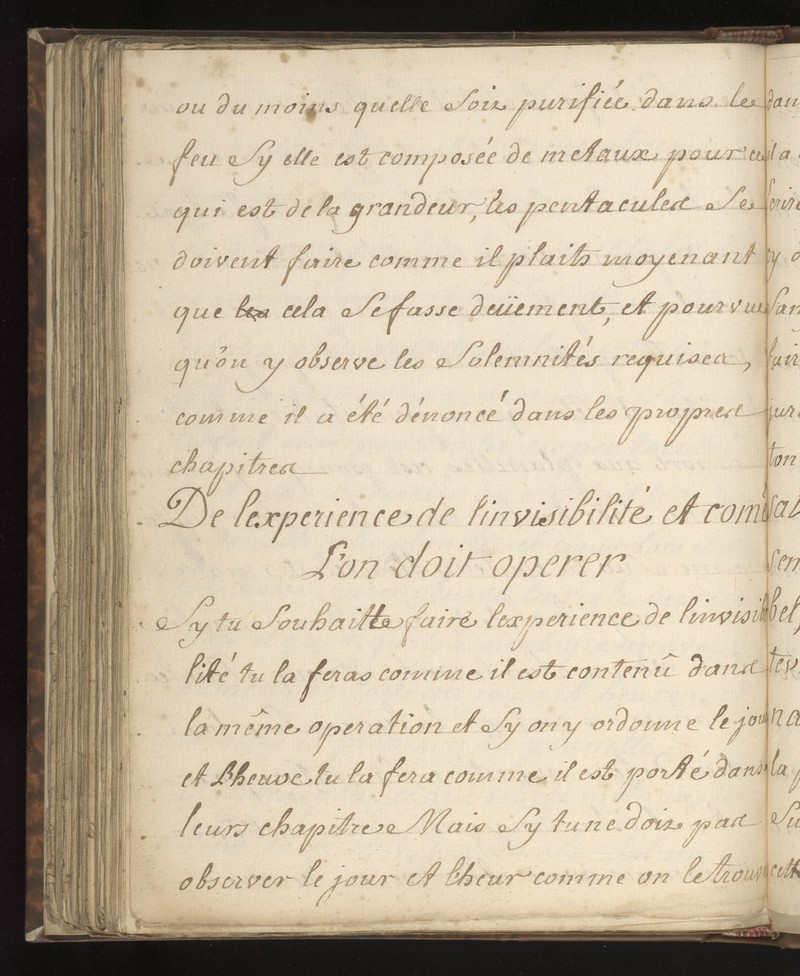 ou du moins quelle Soit purifiée dans le
feu Sy elle est composée de metaux pour ce
qui est de la grandeur, les pentacules Se
doivent faire comme il plaits moyenant
que cela Se fasse deüement, et pourvue
qu'on y observe les Solemnités requises,
comme il a été dénoncé dans les propres
chapitres
De lexperience de linvisibilité et com
L'on doit operer
Sy tu Souhaitte faire lexperience de linvisibi
lité tu la feras comme il est contenû dans
la même operation et Sy on y ordonne le jour
et Lheuve tu la fera comme il est porté dans
leurs chapitre Mais Sy tu ne dois pas
observer le jour et lheur comme on le trouve